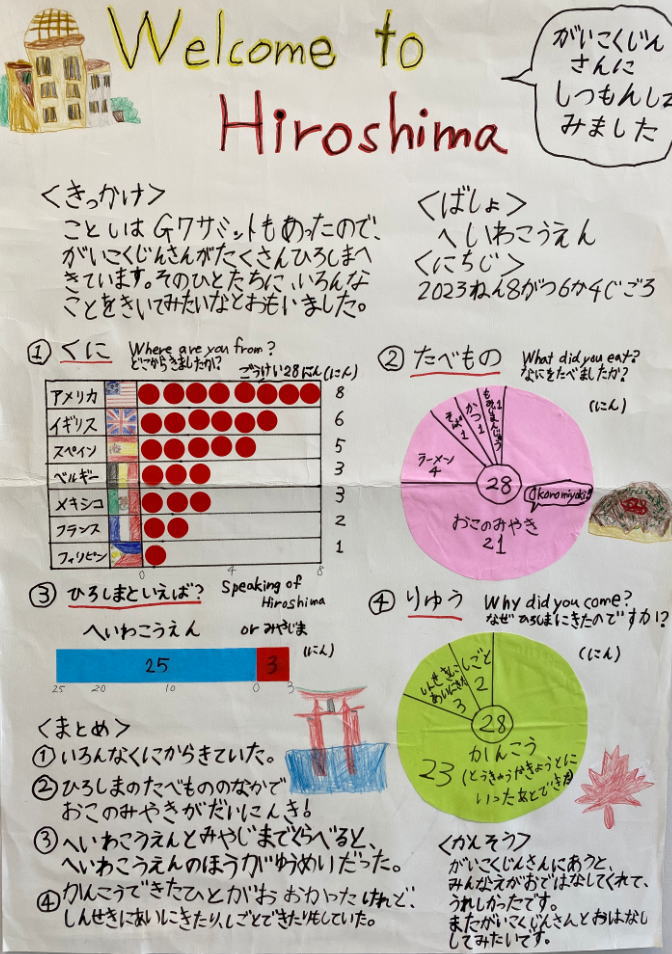 Welcome to
Hiroshima
がいこくじん
さんに
しつもんして
みました
<きっかけ>
ことしはG7サミットもあったので、
がいこくじんさんがたくさんひろしまへ
きています。そのひとたちに、いろんな
ことをきいてみたいなとおもいました。
<ばしょ>
へいわこうえん
<にちじ>
2023ねん8がつ6か4じごろ
① くに Where are you from?
どこからきましたか?
ごうけい28にん(にん)
アメリカ 8
イギリス 6
スペイン 5
ベルギー 3
メキシコ 3
フランス 2
フィリピン 1
0 4 8
② たべもの What did you eat?
なにをたべましたか?
(にん)
もみじまんじゅう 1
かつ 1
そば 1
ラーメン
4
28
Okonomiyaki
おこのみやき
21
③ ひろしまといえば? Speaking of
Hiroshima
へいわこうえん or みやじま
(にん)
25 3
25 20 10 0 3
④ りゆう Why did you come?
なぜひろしまにきたのですか!?
(にん)
しごと
2
しんせきに
あいにきた
3
28
かんこう
23 (とうきょうやきょうとに
いったあとできた)
<まとめ>
① いろんなくにからきていた。
② ひろしまのたべもののなかで
おこのみやきがだいにんき!
③ へいわこうえんとみやじまでくらべると、
へいわこうえんのほうがゆうめいだった。
④ かんこうできたひとがおおかったけれど、
しんせきにあいにきたり、しごとできたりもしていた。
<かんそう>
がいこくじんさんにあうと、
みんなえがおではなしてくれて、
うれしかったです。
またがいこくじんさんとおはなし
してみたいです。